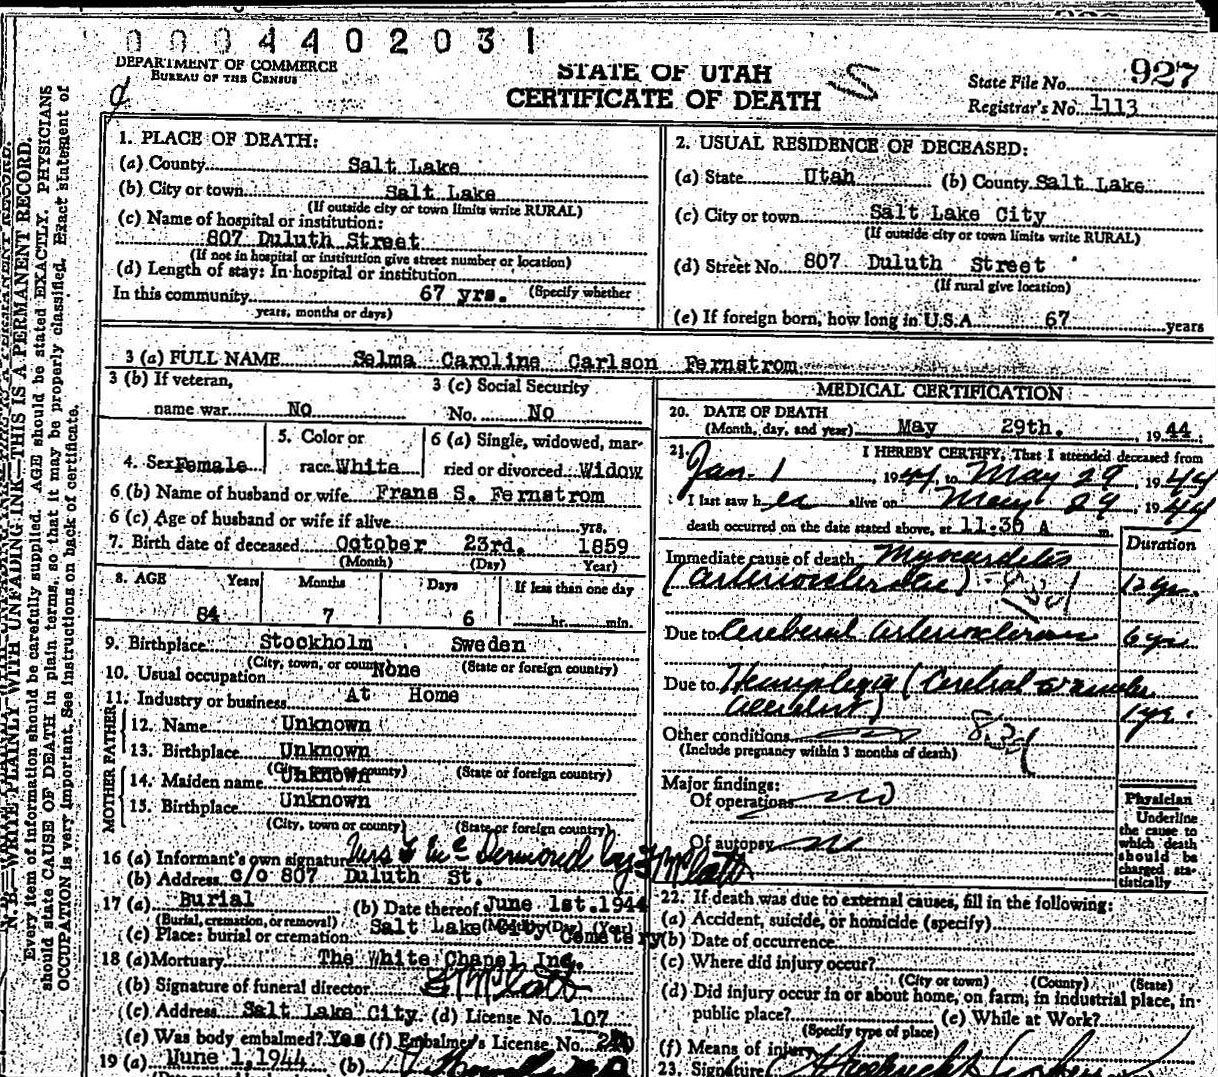 0004402031
DEPARTMENT OF COMMERCE
BUREAU OF THE CENSUS
STATE OF UTAH
CERTIFICATE OF DEATH
State File No. 927
Registrar's No. 1113
N. B.—WRITE PLAINLY WITH UNFADING INK—THIS IS A PERMANENT RECORD.
Every item of information should be carefully supplied. AGE should be stated EXACTLY. PHYSICIANS
should state CAUSE OF DEATH in plain terms, so that it may be properly classified. Exact statement of
OCCUPATION is very important. See instructions on back of certificate.
1. PLACE OF DEATH:
(a) County Salt Lake
(b) City or town Salt Lake
(If outside city or town limits write RURAL)
(c) Name of hospital or institution:
807 Duluth Street
(If not in hospital or institution give street number or location)
(d) Length of stay: In hospital or institution
In this community 67 yrs. (Specify whether
years, months or days)
2. USUAL RESIDENCE OF DECEASED:
(a) State Utah (b) County Salt Lake
(c) City or town Salt Lake City
(If outside city or town limits write RURAL)
(d) Street No. 807 Duluth Street
(If rural give location)
(e) If foreign born, how long in U.S.A. 67 years
3 (a) FULL NAME Selma Caroline Carlson Fernstrom
3 (b) If veteran,
name war No
3 (c) Social Security
No. No
4. Sex Female
5. Color or
race White
6 (a) Single, widowed, mar-
ried or divorced Widow
6 (b) Name of husband or wife Frans S. Fernstrom
6 (c) Age of husband or wife if alive yrs.
7. Birth date of deceased October 23rd. 1859
(Month) (Day) Year)
8. AGE Years Months Days If less than one day
84 7 6 hr. min.
9. Birthplace Stockholm Sweden
(City, town, or county) (State or foreign country)
10. Usual occupation None
11. Industry or business At Home
FATHER
12. Name Unknown
13. Birthplace Unknown
(City, town or county) (State or foreign country)
MOTHER
14. Maiden name Unknown
15. Birthplace Unknown
(City, town or county) (State or foreign country)
16 (a) Informant's own signature Mrs F McDermond by
(b) Address c/o 807 Duluth St.
17 (a) Burial (b) Date thereof June 1st. 1944
(Burial, cremation, or removal) (Month) (Day) (Year)
(c) Place: burial or cremation Salt Lake City Cemetery
18 (a) Mortuary The White Chapel Inc.
(b) Signature of funeral director
(c) Address Salt Lake City. (d) License No. 107
(e) Was body embalmed? Yes (f) Embalmer's License No.
19 (a) June 1, 1944 (b)
MEDICAL CERTIFICATION
20. DATE OF DEATH
(Month, day, and year) May 29th. , 1944
21. I HEREBY CERTIFY, That I attended deceased from
Jan. 1 , 1944, to May 29 , 1944
I last saw her alive on May 29 , 1944
death occurred on the date stated above, at 11:30 A m.
Duration
Immediate cause of death Myocarditis
(Arteriosclerotic) 12 yrs.
Due to Cerebral Arteriosclerosis 6 yrs
Due to Hemiplegia (Cerebral Vascular
accident) 1 yr.
Other conditions
(Include pregnancy within 3 months of death)
Major findings:
Of operations no
Of autopsy no
Physician
Underline
the cause to
which death
should be
charged sta-
tistically
22. If death was due to external causes, fill in the following:
(a) Accident, suicide, or homicide (specify)
(b) Date of occurrence
(c) Where did injury occur?
(City or town) (County) (State)
(d) Did injury occur in or about home, on farm, in industrial place, in
public place? (e) While at Work?
(Specify type of place)
(f) Means of injury
23. Signature